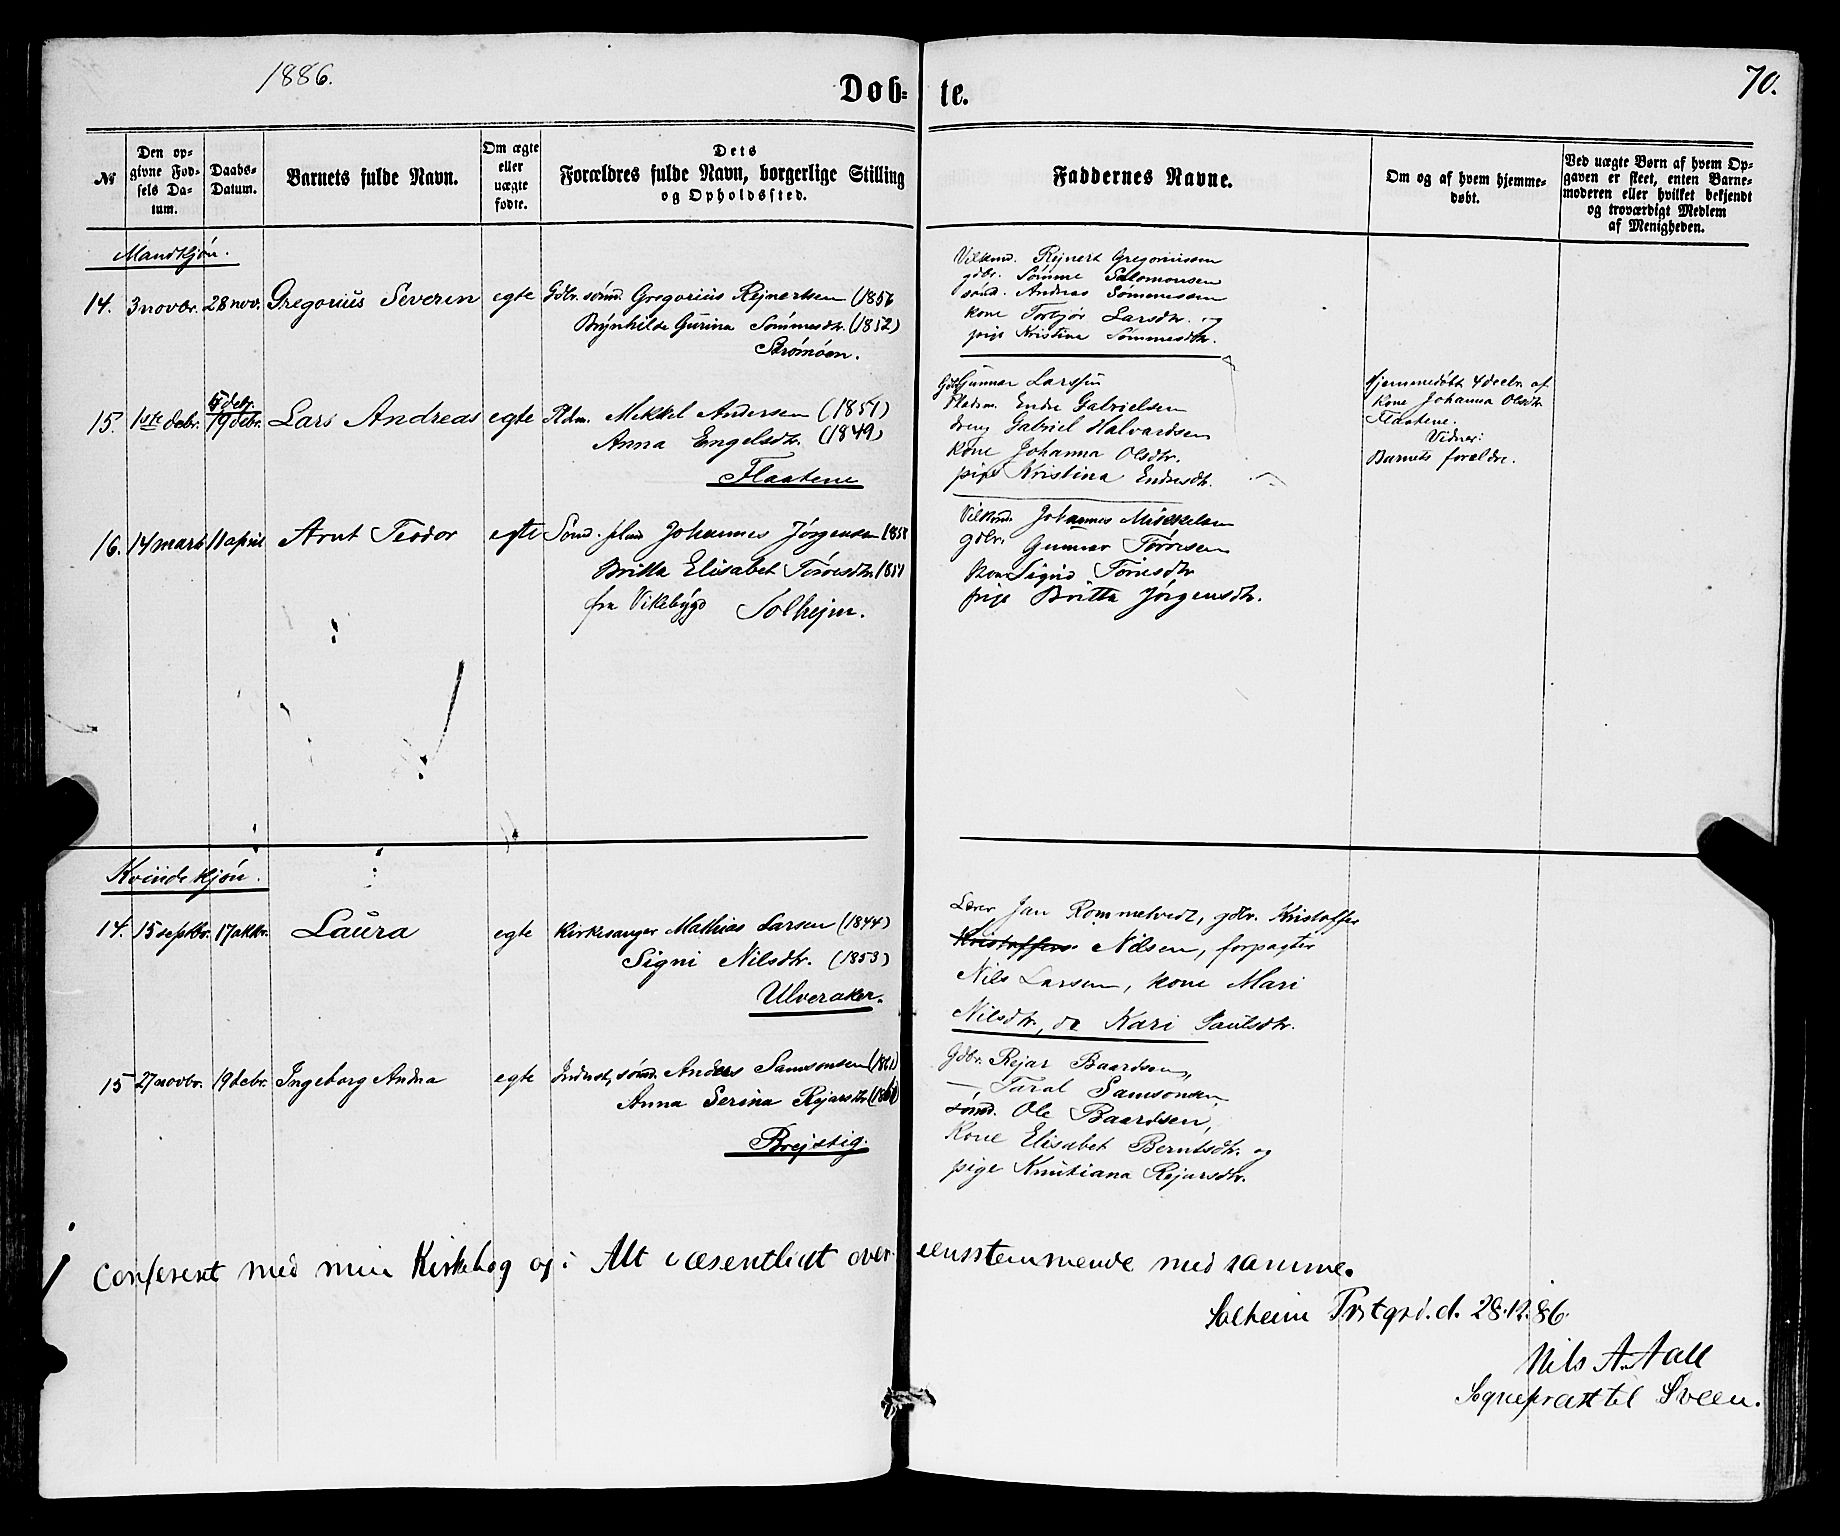 1886.
Døb- te.
70.
№
Den op-
givne Fød-
sels Da-
tum.
Daabs-
Datum.
Barnets fulde Navn.
Om ægte
eller
uægte
fødte.
Dets
Forældres fulde Navn, borgerlige Stilling
og Opholdssted.
Faddernes Navne.
Om og af hvem hjemme-
døbt.
Ved uægte Børn af hvem Op-
gaven er skeet, enten Barne-
moderen eller hvilket bekjendt
og troværdigt Medlem
af Menigheden.
Mandkjøn.
14. 3 novbr. 28 nov. Gregorius Severin egte Gdbr. sømd. Gregorius Rejnertsen (1856
Brynhilde Gurina Sømmesdtr. (1852)
Strømøen.
Vilkmd. Rejnert Gregoriussen
gdbr. Sømme Salomonsen
sømd. Andreas Sømmesen
kone Torbjør Larsdtr. og
pige Kristine Sømmesdtr.
15. 1ste debr. 5 debr.
19 debr. Lars Andreas egte Pldm. Mikkel Andersen (1851)
Anna Engelsdtr. (1849)
Flaatene
Gdbr Gunnar Larssen
Pladsm. Endre Gabrielsen
dreng Gabriel Halvardsen
kone Johanna Olsdtr.
pige Kristina Endresdtr.
Hjemmedøbt 4 decbr. af
kone Johanna Olsdtr.
Flaatene.
Vidner:
Barnets forældre.
16. 14 mars 11 april Arnt Teodor egte Sømd. Johannes Jørgensen
Britta Elisabet Tøresdtr. 1851
fra Vikebygd Solhejm.
Vilkmd. Johannes Mikkelsen
gdbr. Gunnar Tøresen
kone Sigrid Toresdtr
pige Britta Jørgensdtr.
Kvindekjøn.
14. 15 septbr. 17 oktbr. Laura egte Kirkesanger Mathias Larsen (1844)
Signi Nilsdtr. (1853)
Ulveraker.
Lærer Jan Rommetvedt, gdbr. Kristoffer
Kristoffers. Nilsen, forpagter
Nils Larsen, kone Mari
Nilsdtr., do Kari Paulsdtr.
15 27 novbr. 19 debr. Ingeborg Andrea egte Inderst, sømd. Anders Samsonsen (1861)
Anna Serina Rejarsdtr
Brejstig.
Gdbr. Rejar Baardsen,
— Taral Samsonsen,
sømd. Ole Baardsen,
Kone Elisabet Berntsdtr. og
pige Knutiana Rejarsdtr.
Confereret med min Kirkebog og i Alt væsentligt over- eensstemmende med samme.
Solheim Prstgrd. d. 28.12.86.
Nils A. Aall
Sognepræst til Sveen.